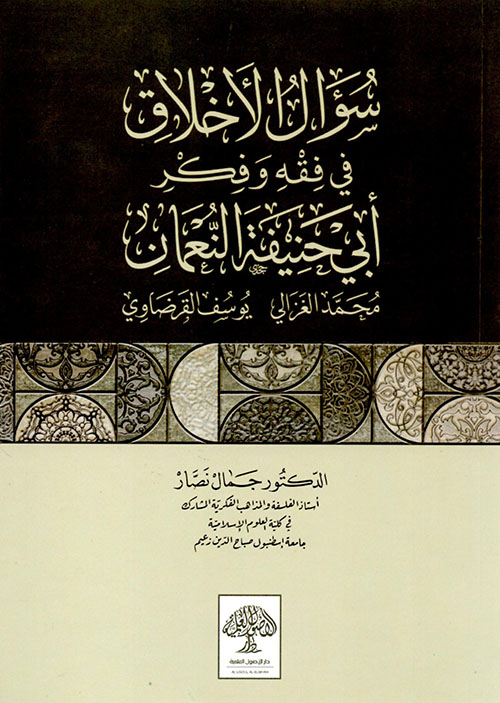 سُؤَالُ الأَخْلَاقِ
فِي فِقْهِ وَفِكْرِ
أَبِي حَنِيفَةَ النُّعْمَانِ
مُحَمَّد الغَزَالِي يُوسُف القَرَضَاوِي
الدّكتُور جَمَال نَصَّار
أستاذ الفلسفة والمذاهب الفكرية المشارك
في كلية العلوم الإسلامية
جامعة إسطنبول صباح الدين زعيم
دار الأصول العلمية
دار الأصول العلمية